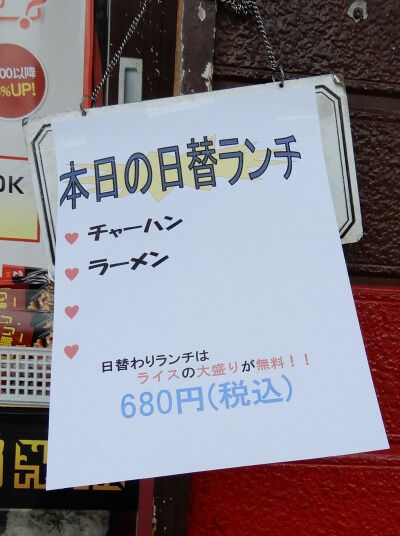 本日の日替ランチ
チャーハン
ラーメン
日替わりランチは
ライスの大盛りが無料！！
680円(税込)
00以降
%UP!
OK